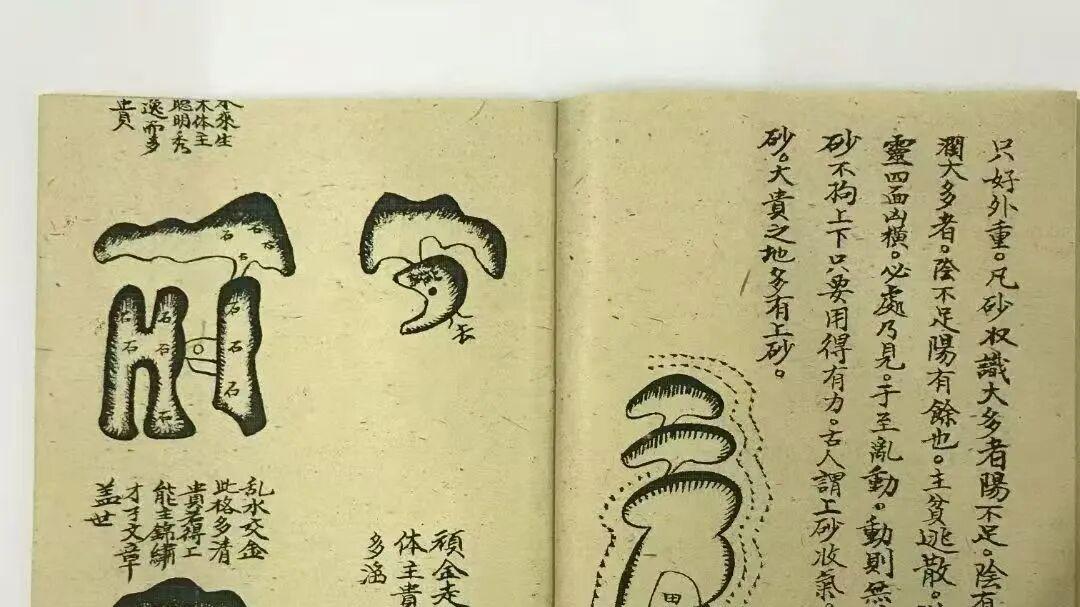 只好外重。凡砂収識大多者陽不足。陰有
濶大多者。陰不足陽有餘也。主貧逃散。
靈四面凶橫。必處乃見。于至亂動。動則無
砂不拘上下只要用得有力。古人謂上砂收氣。
砂。大貴之地多有上砂。
田
来生
木体主
聰明秀
逸而多
貴
石
石
石
石
石
石
石
石
石
石
石
石
石
去
乱水交金
此格多清
貴若得工
能主錦繡
才子文章
盖世
頑金走
体主貴
多滛